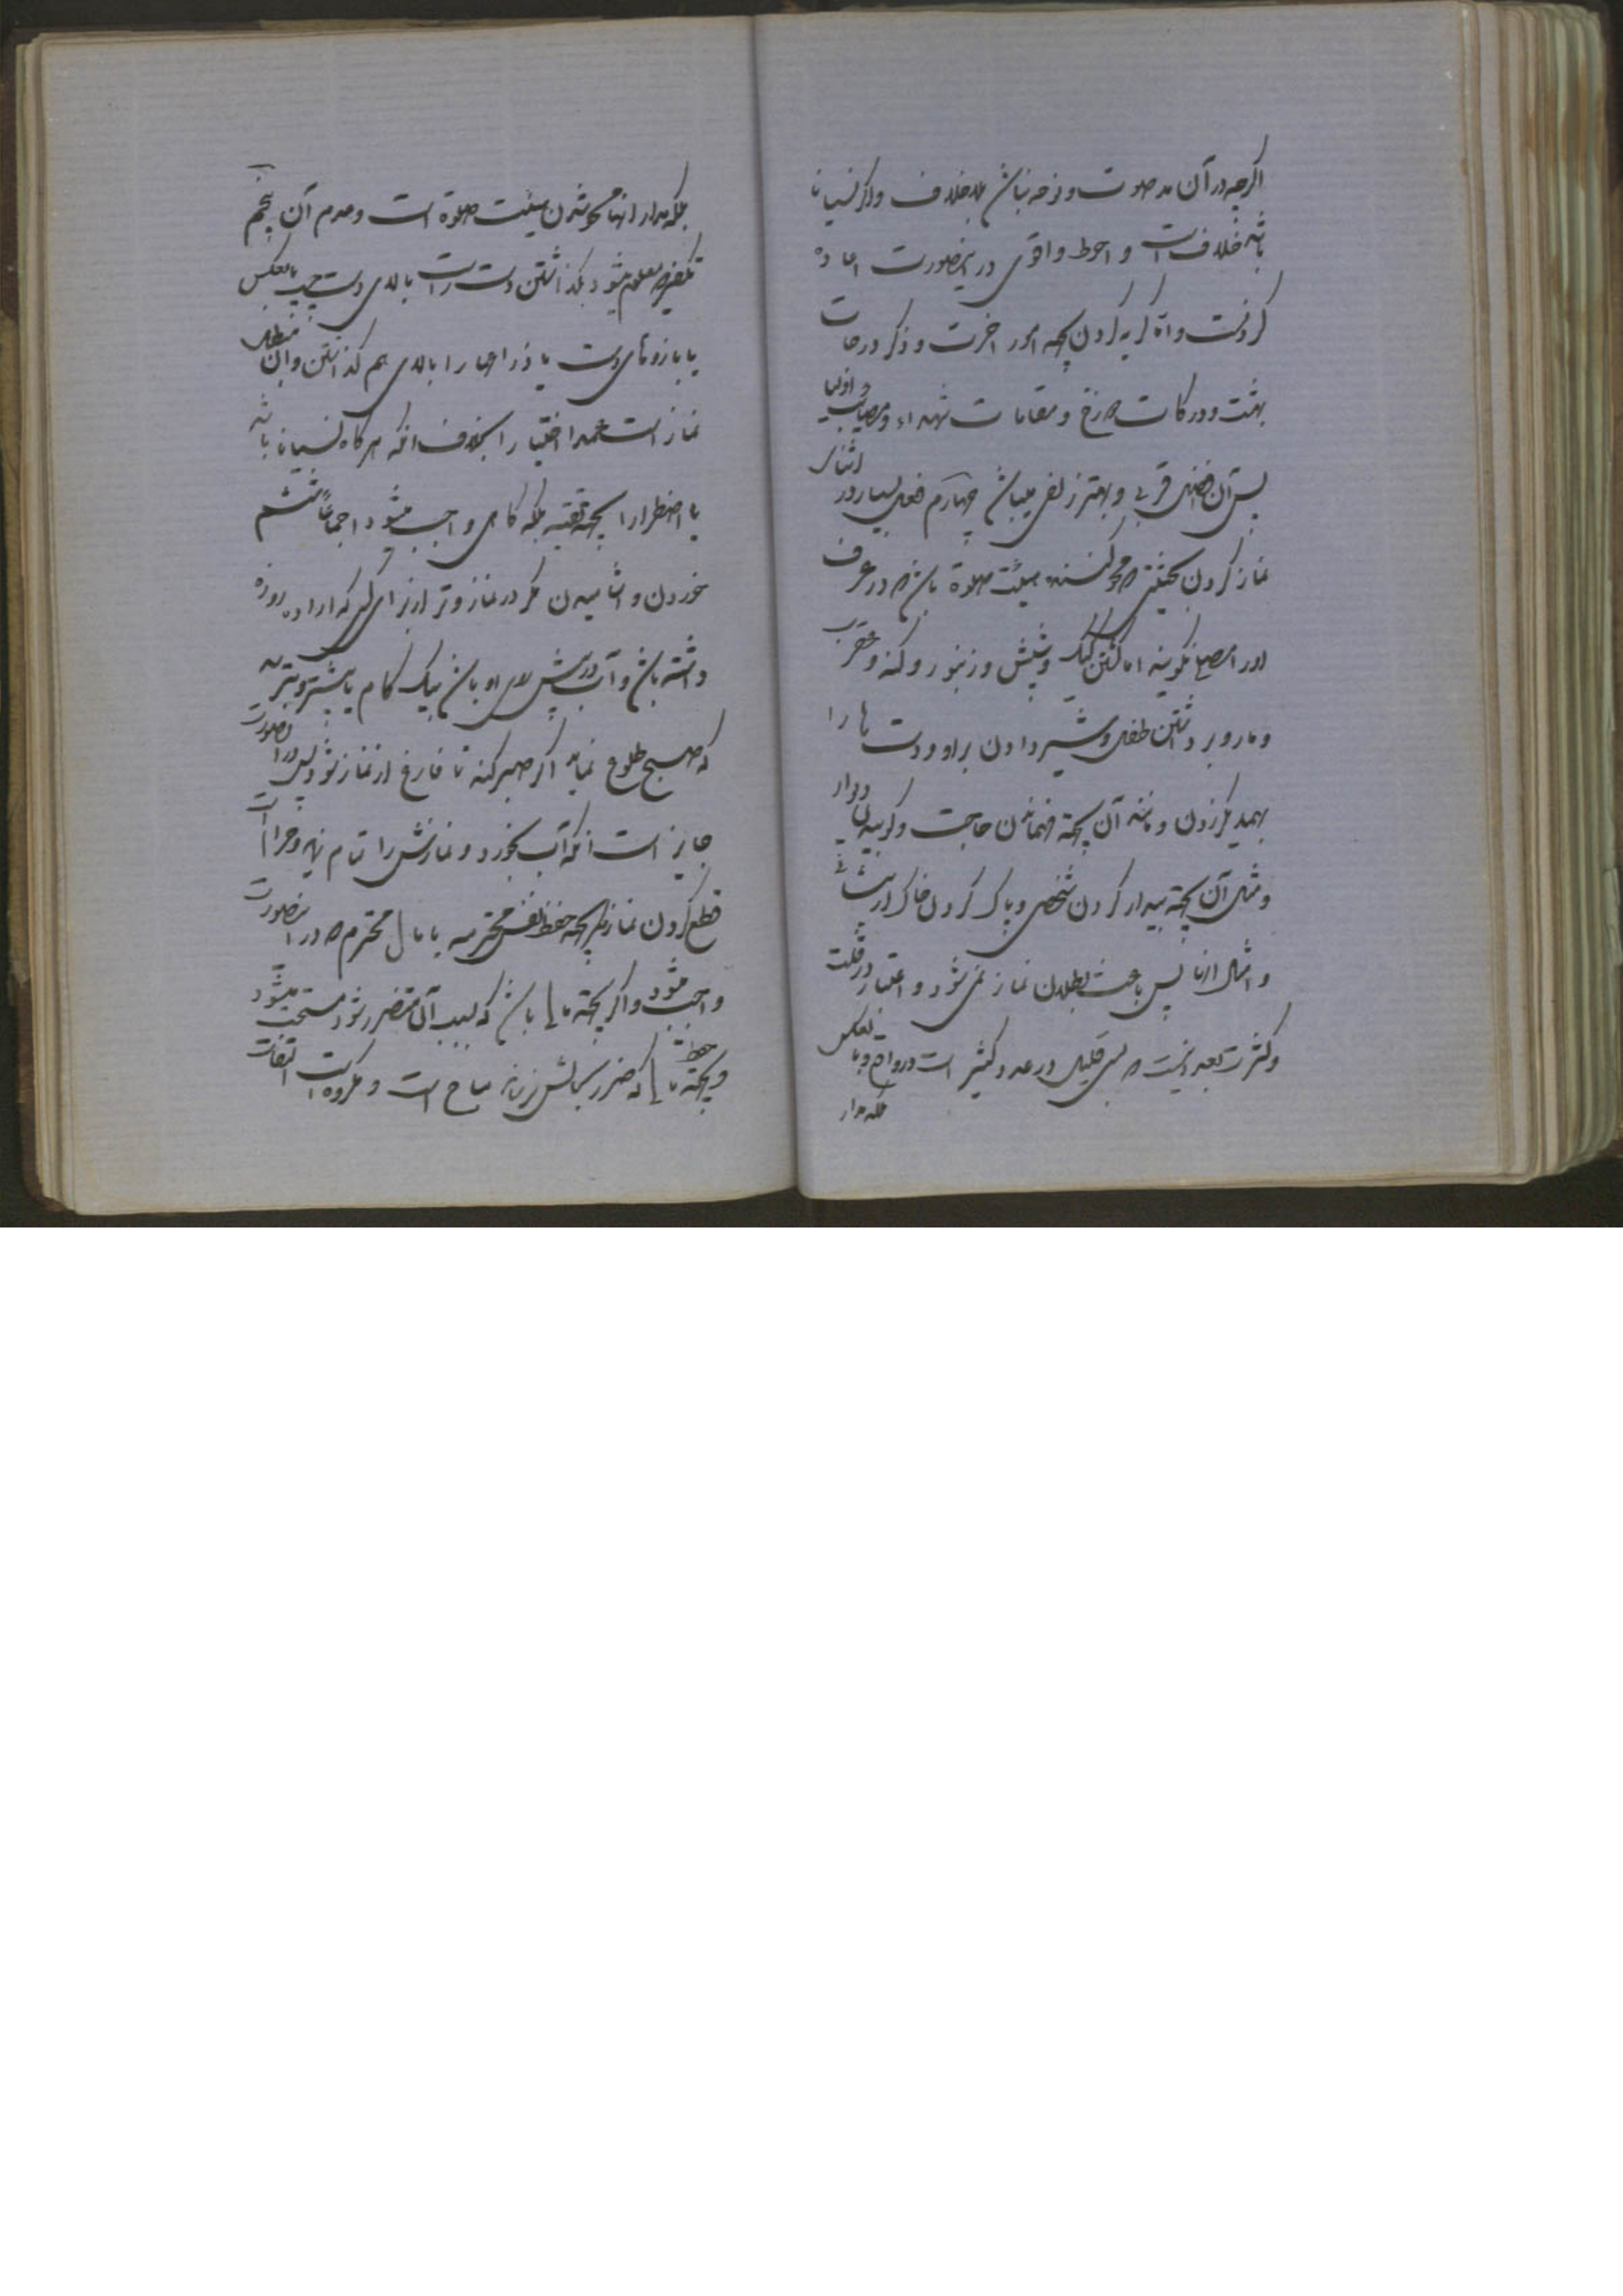 اگرچه در آن مد صوت و نوحه نباشد بلاخلاف و اگر نسیانا
باشد خلاف است و احوط و اقوی در اینصورت اعاده
کردنست و اما گریه کردن بجهة امور اخرت و ذکر درجات
بهشت و درکات دوزخ و مقامات شهداء و مصایب اولیا
پس آن افضل قربی و بهتر زلفی میباشد چهارم فعل بسیار در اثنای
نماز کردن بحیثیتی که محو کننده هیئت صلوة باشد که در عرف
او را مصلی نگویند اما کشتن کیک و شپش و زنبور و کنه و عقرب
و مار و برداشتن طفل و شیر دادن بر او و دست ها را
بهمدیگر زدن و مانند آن بجهة فهماندن حاجت و کوبیدن دیوار
و مثل آن بجهة بیدار کردن شخصی و پاک کردن خاک از پیشانی
و امثال اینها پس باعث بطلان نماز نمی شود و اعتبار در قلت
و کثرت بعدد نیست که بسی قلیل در عدد کثیر است در واقع و بالعکس
بلکه مدار
بلکه مدار اینها محو شدن هیئت صلوة است و عدم آن پنجم
تکفیر که بعمل میشود بگذاشتن دست راست بالای دست چپ یا بالعکس
یا بازوهای دست یا ذراعها را بالای هم گذاشتن و ان مبطل
نماز است عمدا اختیارا بخلاف انکه هر گاه نسیانا باشد
یا اضطرارا بجهة تقیه بلکه گاهی واجب میشود اجماعاً ششم
خوردن و اشامیدن مگر در نماز وتر از برای کسی که اراده روزه
داشته باشد و آب در پیش روی او باشد بیک گام یا بیشتر و بترسد
که صبح طلوع نماید اگر صبر کند تا فارغ از نماز شود پس در اینصورت
جایز است انکه آب بخورد و نمازش را تمام نماید و حرام است
قطع کردن نماز مگر بجهة حفظ نفس محترمه یا مال محترم که در اینصورت
واجب میشود و اگر بجهة مالی باشد که بسبب آن متضرر شود مستحب میشود
و بجهة حفظ مالی که ضرر بحالش نرساند مباح است و مکروه است التفات